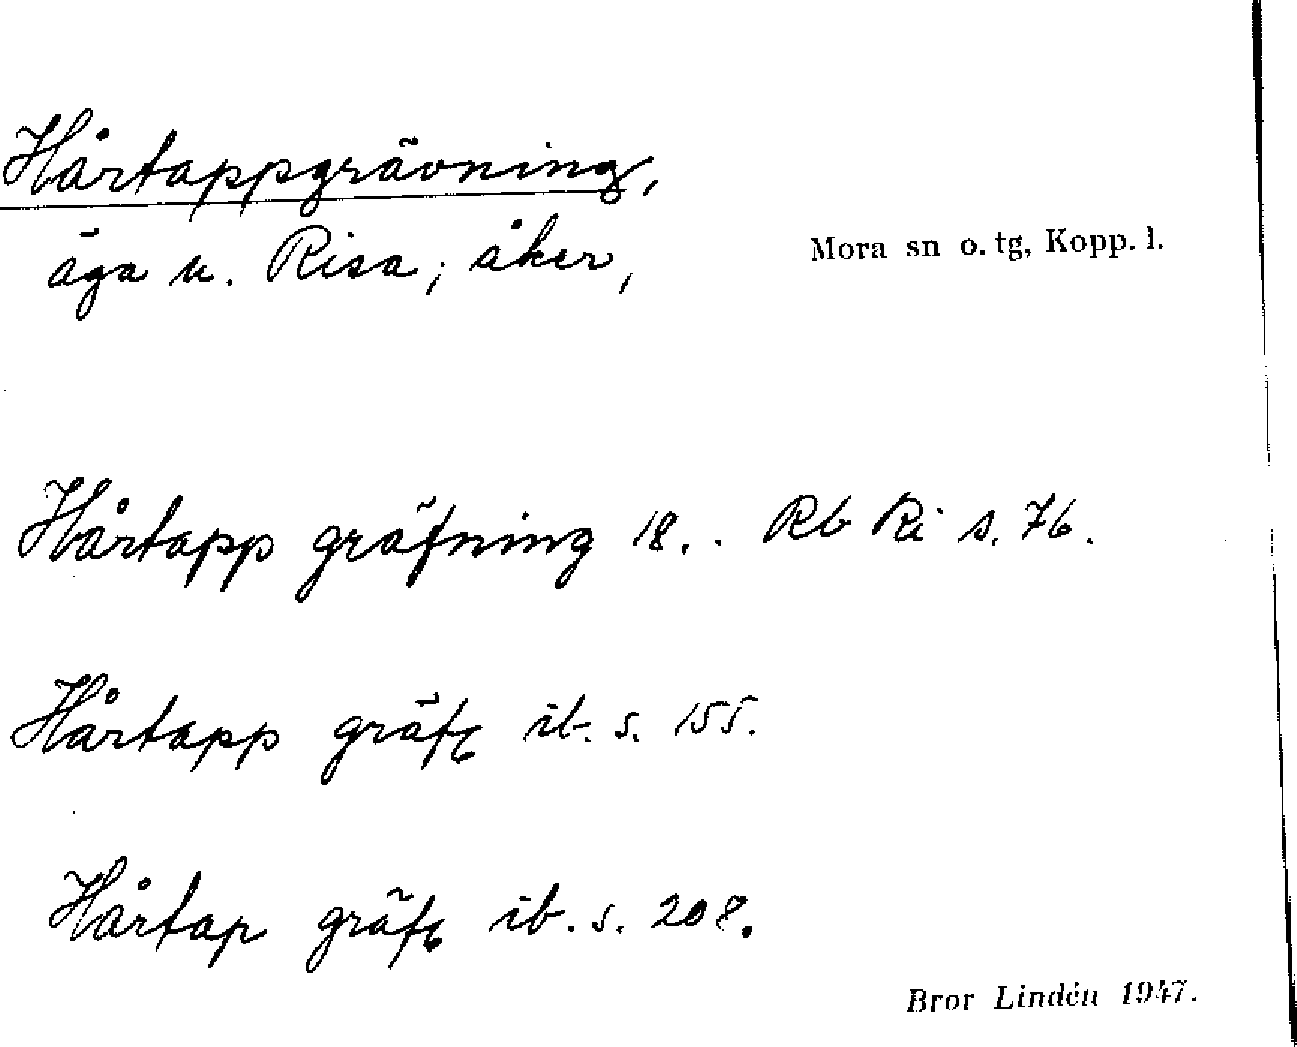 Hårtappgrävning,
äga u. Risa; åker,
Mora sn o. tg, Kopp. l.
Hårtapp gräfning 18.. Rb Ri s. 76.
Hårtapp gräfg ib. s. 155.
Hårtap gräfg ib. s. 208.
Bror Lindén 1947.